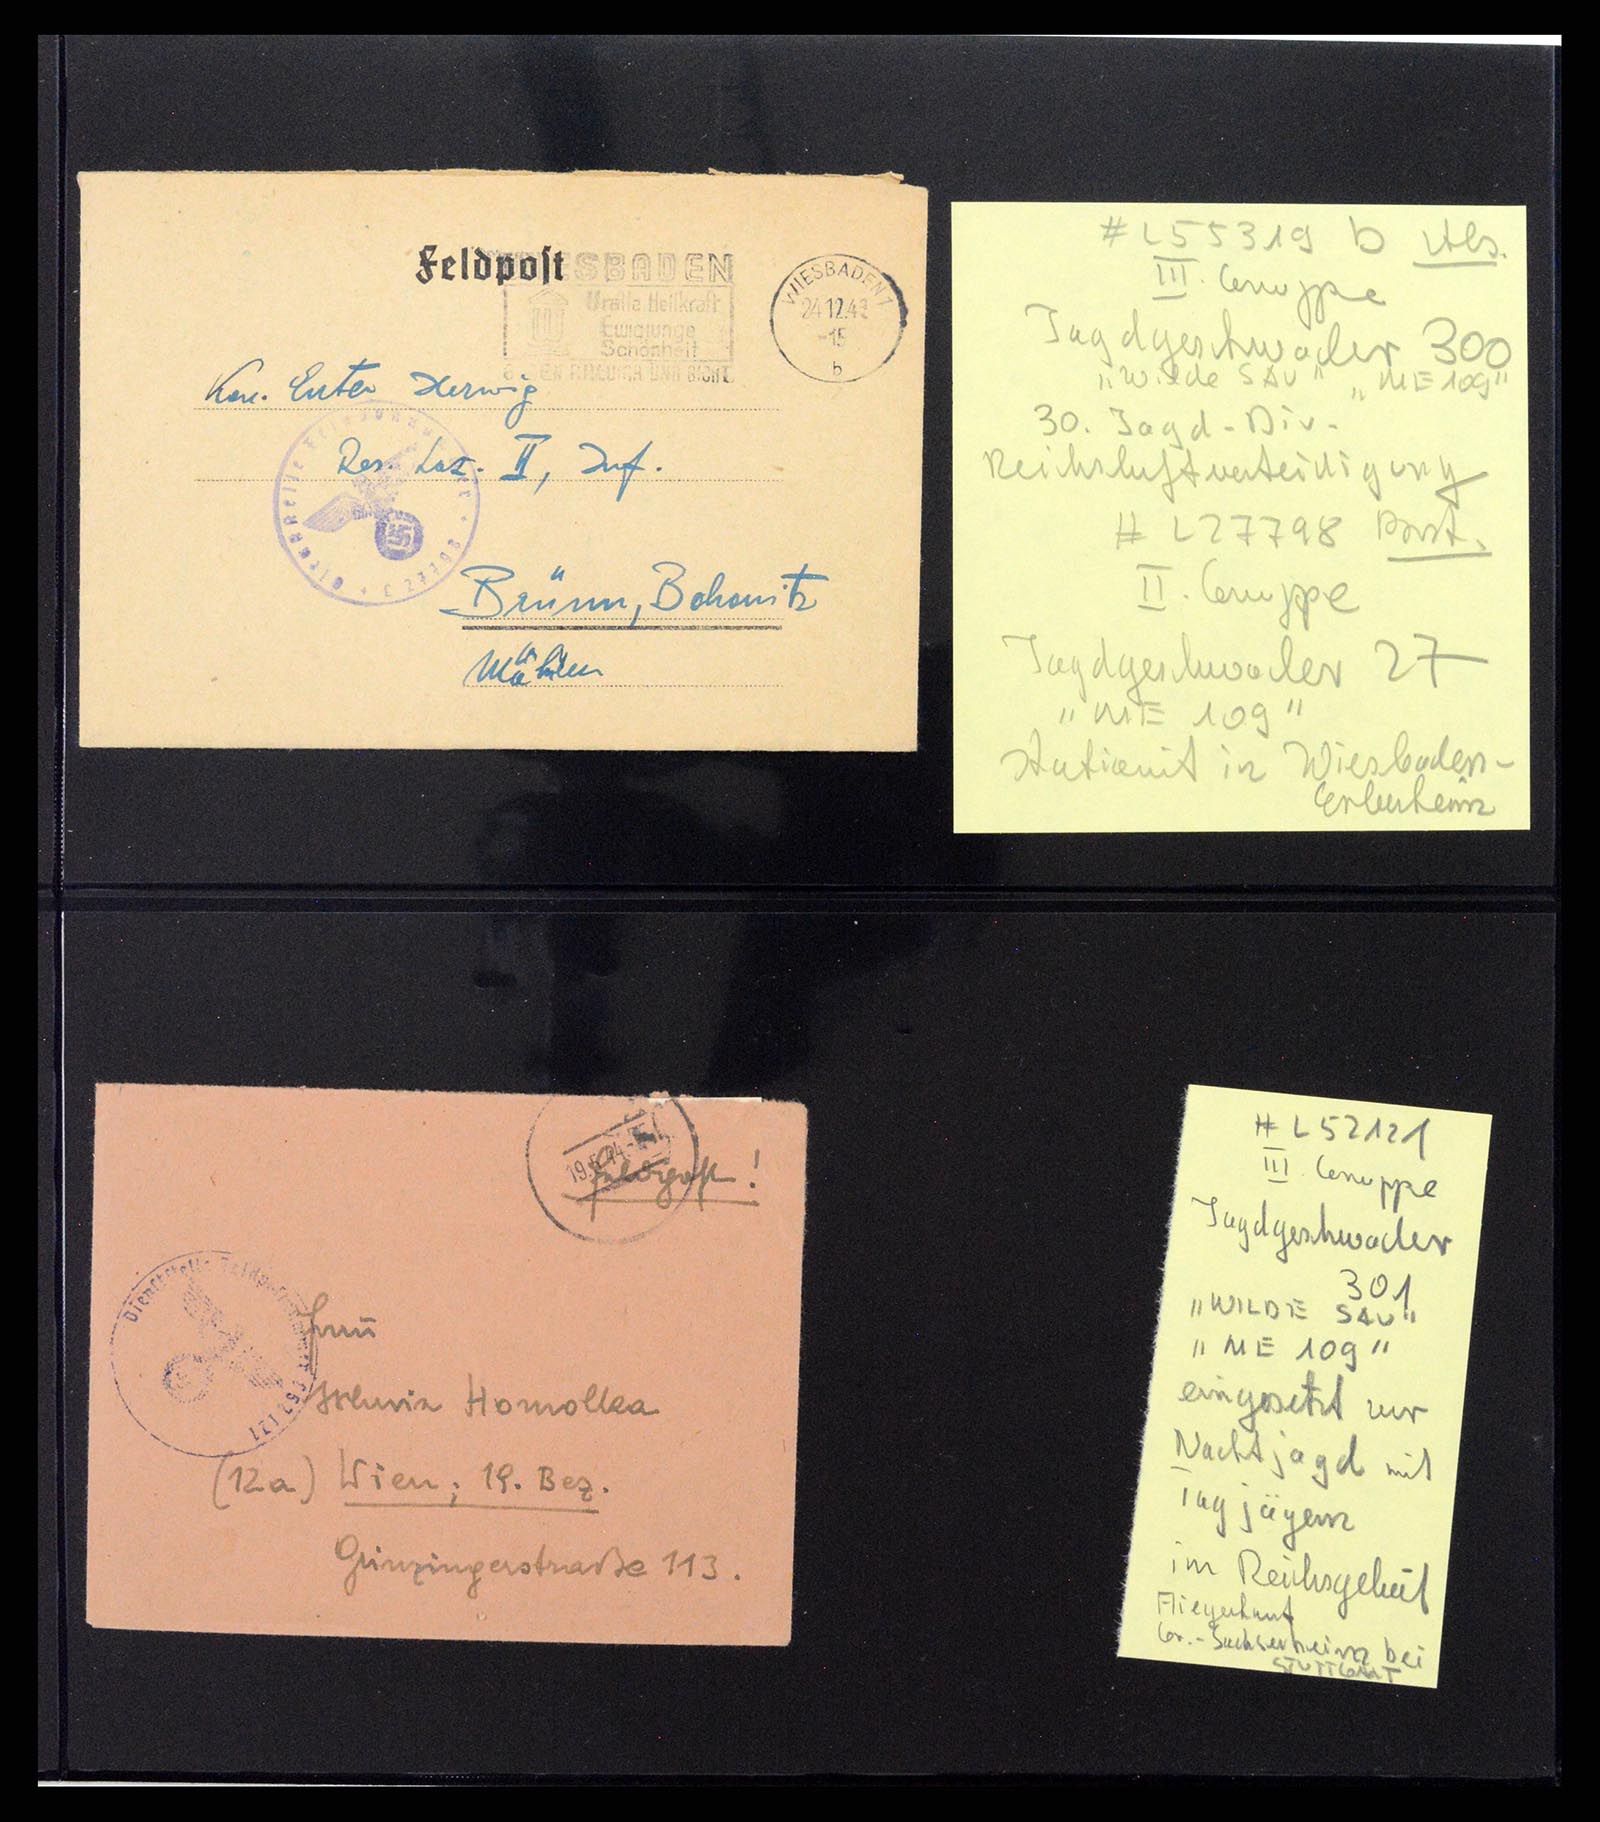 Feldpost
WIESBADEN
Uralte Heilkraft
Ewigjunge
Schönheit
WIESBADEN 1
24.12.43
-15
b
Herwig
Res. Laz. II, Inf.
Brünn, Bohonitz
Mähren
# L55319 b Abs.
III. Gruppe
Jagdgeschwader 300
"Wilde SAU" "ME 109"
30. Jagd-Div.
Reichsluftverteidigung
# L27798 Anst.
II. Gruppe
Jagdgeschwader 27
"ME 109"
Stationiert in Wiesbaden-
Erbenheim
Feldpost!
Dienststelle Feldpostnummer
Homolka
(12a) Wien; 19. Bez.
Grinzingerstraße 113.
# L52121
III. Gruppe
Jagdgeschwader
301
"WILDE SAU"
"ME 109"
eingesetzt zur
Nachtjagd mit
Tagjägern
im Reichsgebiet
Fliegerhorst
Gr.-Sachsenheim bei
STUTTGART